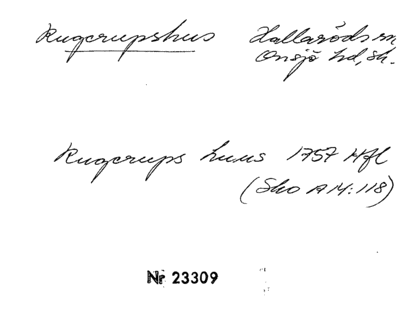 Rugerupshus Hallaröds sn
Onsjö hd, Sk.
Rugerups huus 1757 Hfl
(Sko A M:118)
Nr 23309